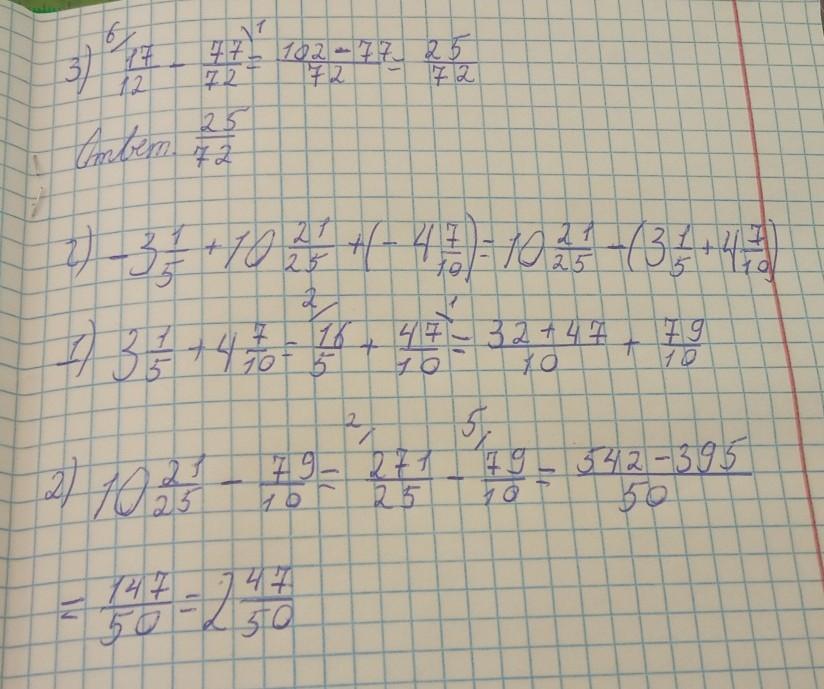 3) 6/ 17/12 - 77/72 \1 = 102-77/72 = 25/72
Ответ. 25/72
г) -3 1/5 + 10 21/25 + (- 4 7/10) = 10 21/25 - (3 1/5 + 4 7/10)
1) 3 1/5 + 4 7/10 = 2/ 16/5 + 47/10 \1 = 32+47/10 + 79/10
2) 10 21/25 - 79/10 = 2/ 271/25 - 5/ 79/10 = 542-395/50
= 147/50 = 2 47/50